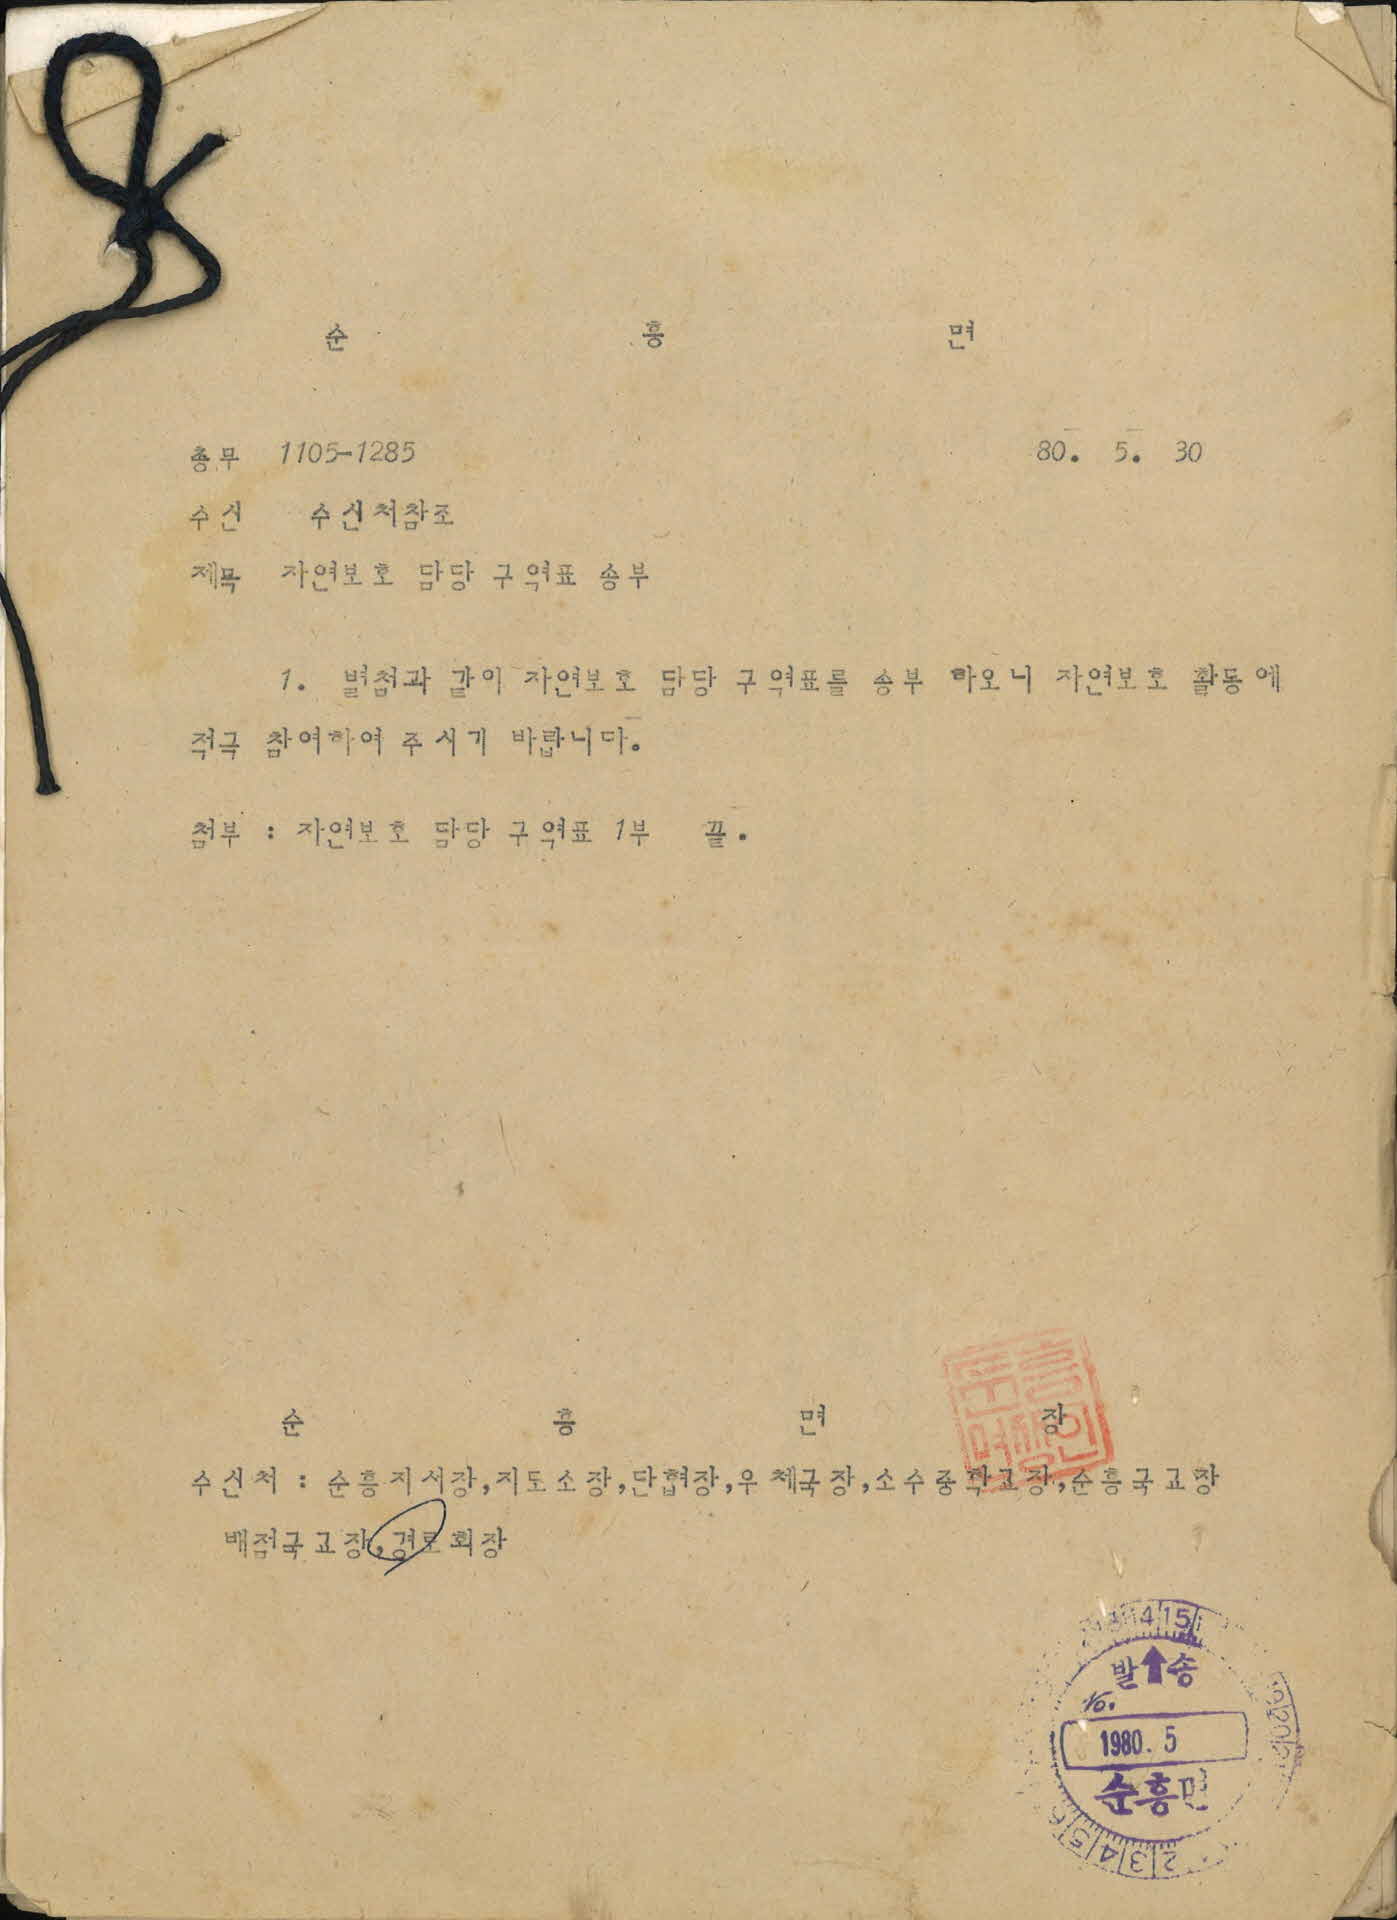 순 흥 면
총무 1105-1285 80. 5. 30
수신 수신처참조
제목 자연보호 담당 구역표 송부
1. 별첨과 같이 자연보호 담당 구역표를 송부 하오니 자연보호 활동에
적극 참여하여 주시기 바랍니다.
첨부 : 자연보호 담당 구역표 1부 끝.
순 흥 면 장
수신처 : 순흥지서장,지도소장,단협장,우체국장,소수중학교장,순흥국교장
배점국교장,경로회장
발 송
1980. 5
순흥면